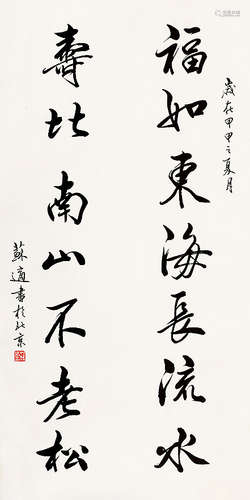 歲在甲申之夏月
福如東海長流水
壽比南山不老松
蘇適書於北京